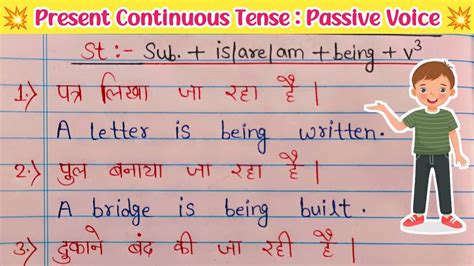 Present Continuous Tense : Passive Voice
St :- Sub. + is/are/am + being + v³
1.) पत्र लिखा जा रहा है |
A letter is being written.
2.) पुल बनाया जा रहा है |
A bridge is being built.
3.) दुकाने बंद की जा रही है |